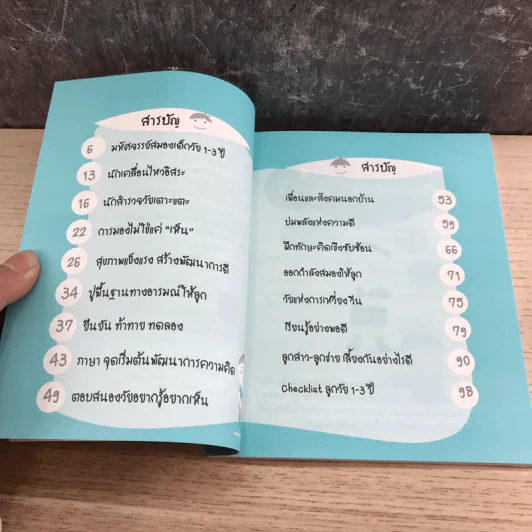 สารบัญ
6 มหัศจรรย์สมองเด็กวัย 1-3 ปี
13 นักเคลื่อนไหวอิสระ
16 นักสำรวจวัยเตาะแตะ
22 การมองไม่ใช่แค่ "เห็น"
26 สุขภาพแข็งแรง สร้างพัฒนาการดี
34 ปูพื้นฐานทางอารมณ์ให้ลูก
37 ยืนยัน ท้าทาย ทดลอง
43 ภาษา จุดเริ่มต้นพัฒนาการความคิด
49 ตอบสนองวัยอยากรู้อยากเห็น
สารบัญ
เพื่อนและสังคมนอกบ้าน 53
บ่มพลังแห่งความดี 59
ฝึกทักษะคิดเชิงซับซ้อน 66
ออกกำลังสมองให้ลูก 71
วัยแห่งการเหวี่ยง วีน 75
เรียนรู้อย่างพอดี 79
ลูกสาว-ลูกชาย เลี้ยงกันอย่างไรดี 90
Checklist ลูกวัย 1-3 ปี 98